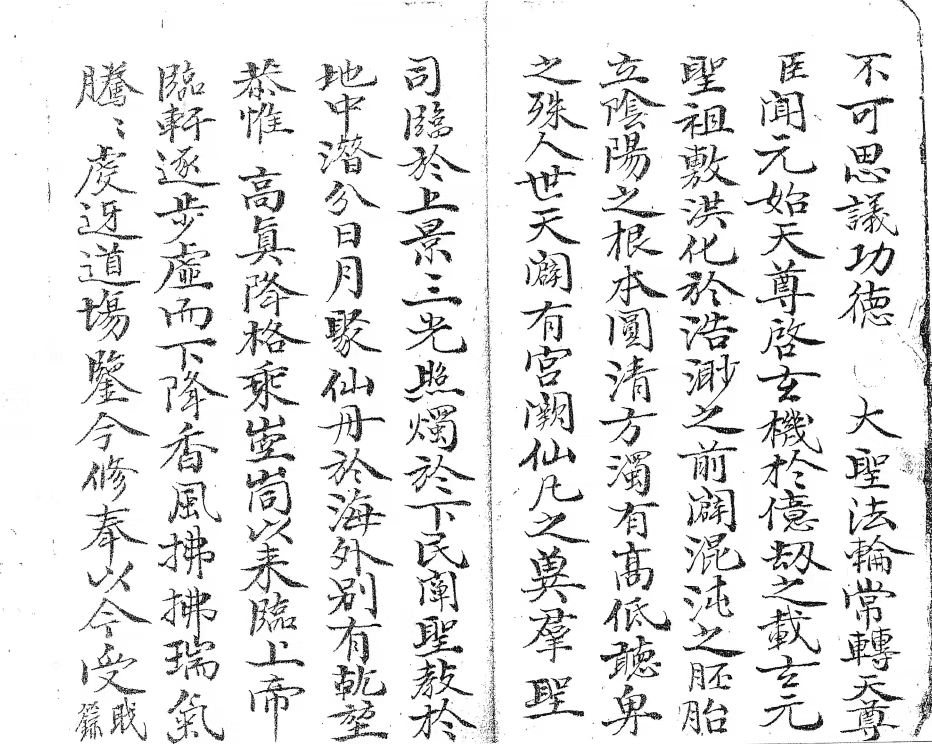 不可思議功德　大聖法輪常轉天尊
臣聞元始天尊啓玄機於億劫之載玄元
聖祖敷洪化於浩渺之前闢混沌之胚胎
立陰陽之根本圓清方濁有高低聽卑
之殊人世天闢有宮潮仙凡之異羣聖
司臨於上景三光照燭於下民闡聖教於
地中潛分日月聚仙丹於海外别有乾堃
恭惟　高真降格乘以来臨上帝
臨軒逐步虛而下降香風拂拂瑞氣
騰〻虔迓道場鑒今修奉以今受戝籙